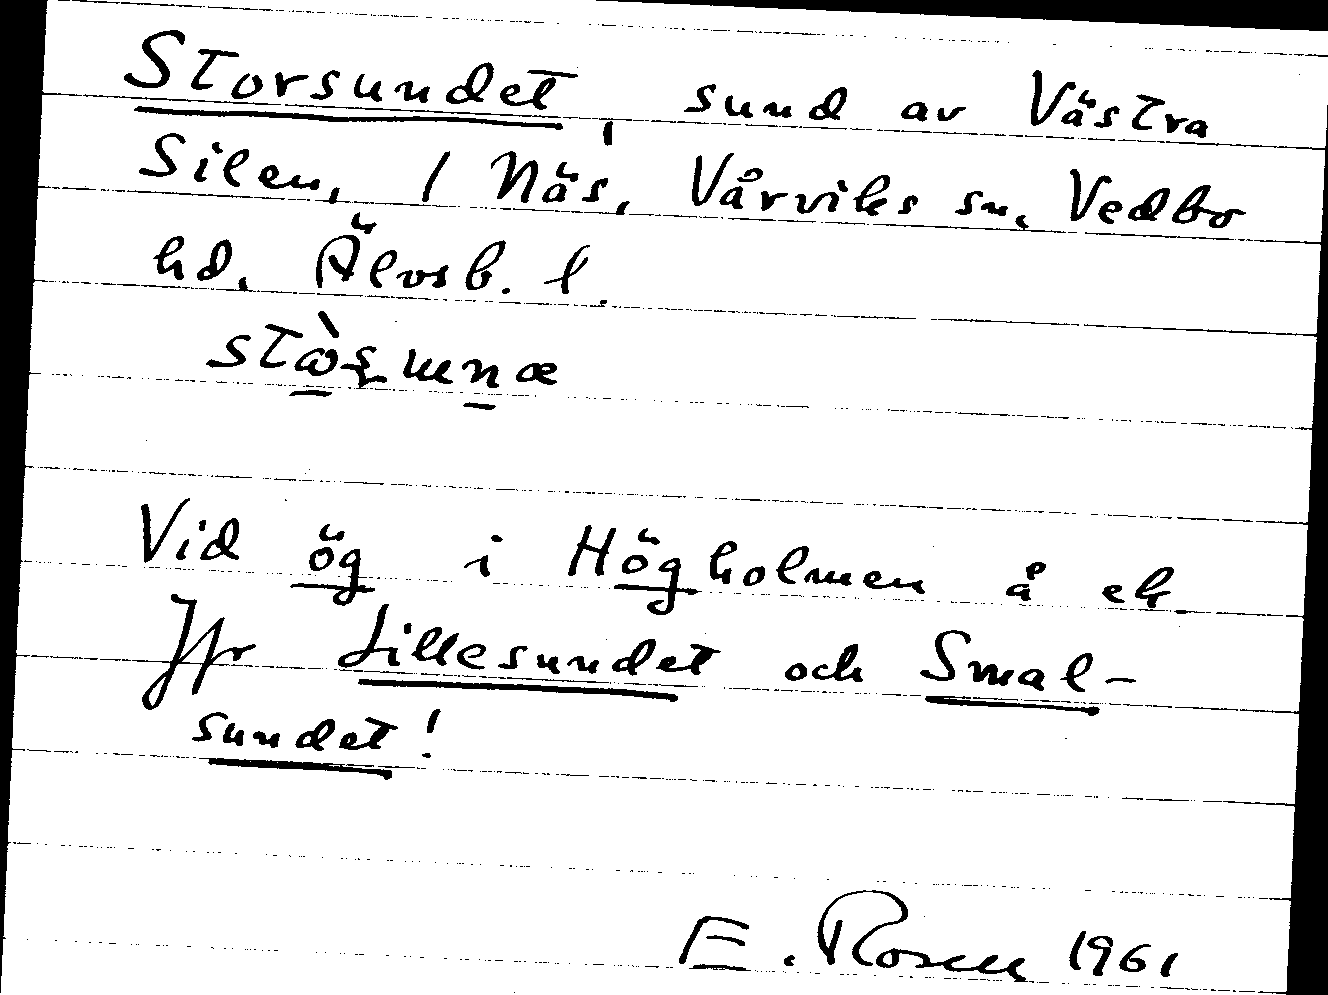 Storsundet, sund av Västra
Silen, / Näs, Vårviks sn. Vedbo
hd. Älvsb. l.
Vid ög i Högholmen å ek.
Jfr Lillesundet och Smal-
sundet!
E. Rosen 1961